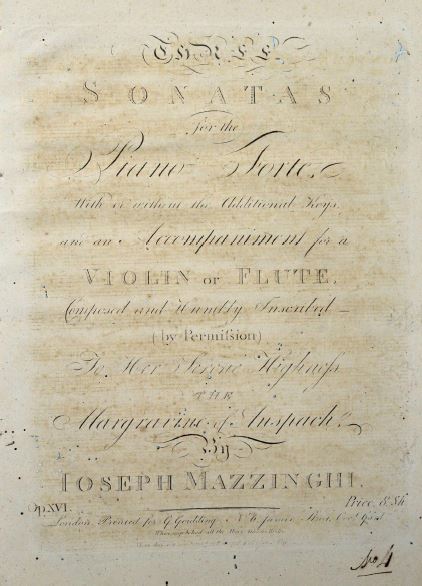 THREE
SONATAS
for the
Piano Forte,
With or without the Additional Keys,
and an Accompaniment for a
VIOLIN or FLUTE,
Composed and Humbly Inscribed
(by Permiſsion)
To Her Serene Highneſs
THE
Margravine of Anspach,
By
IOSEPH MAZZINGHI.
Op. XVI. Price 8 Sh
London, Printed for G. Goulding, Nº 6, James Street,
No 4